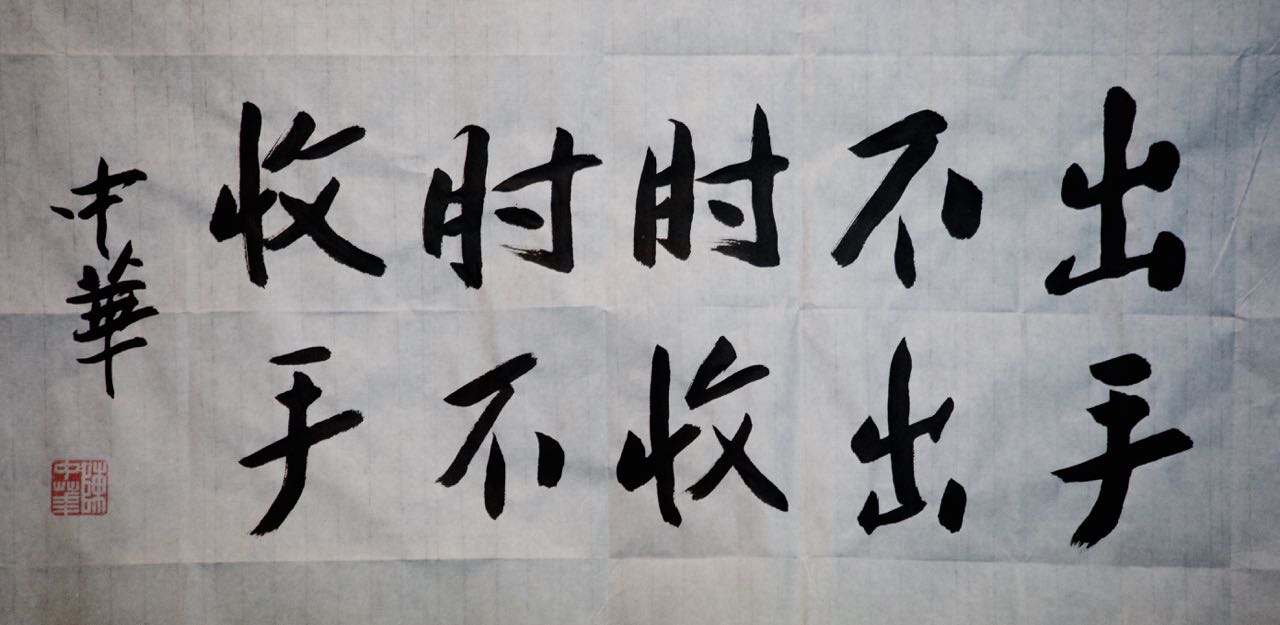 出手
不出
时收
时不
收手
中華
陳中華